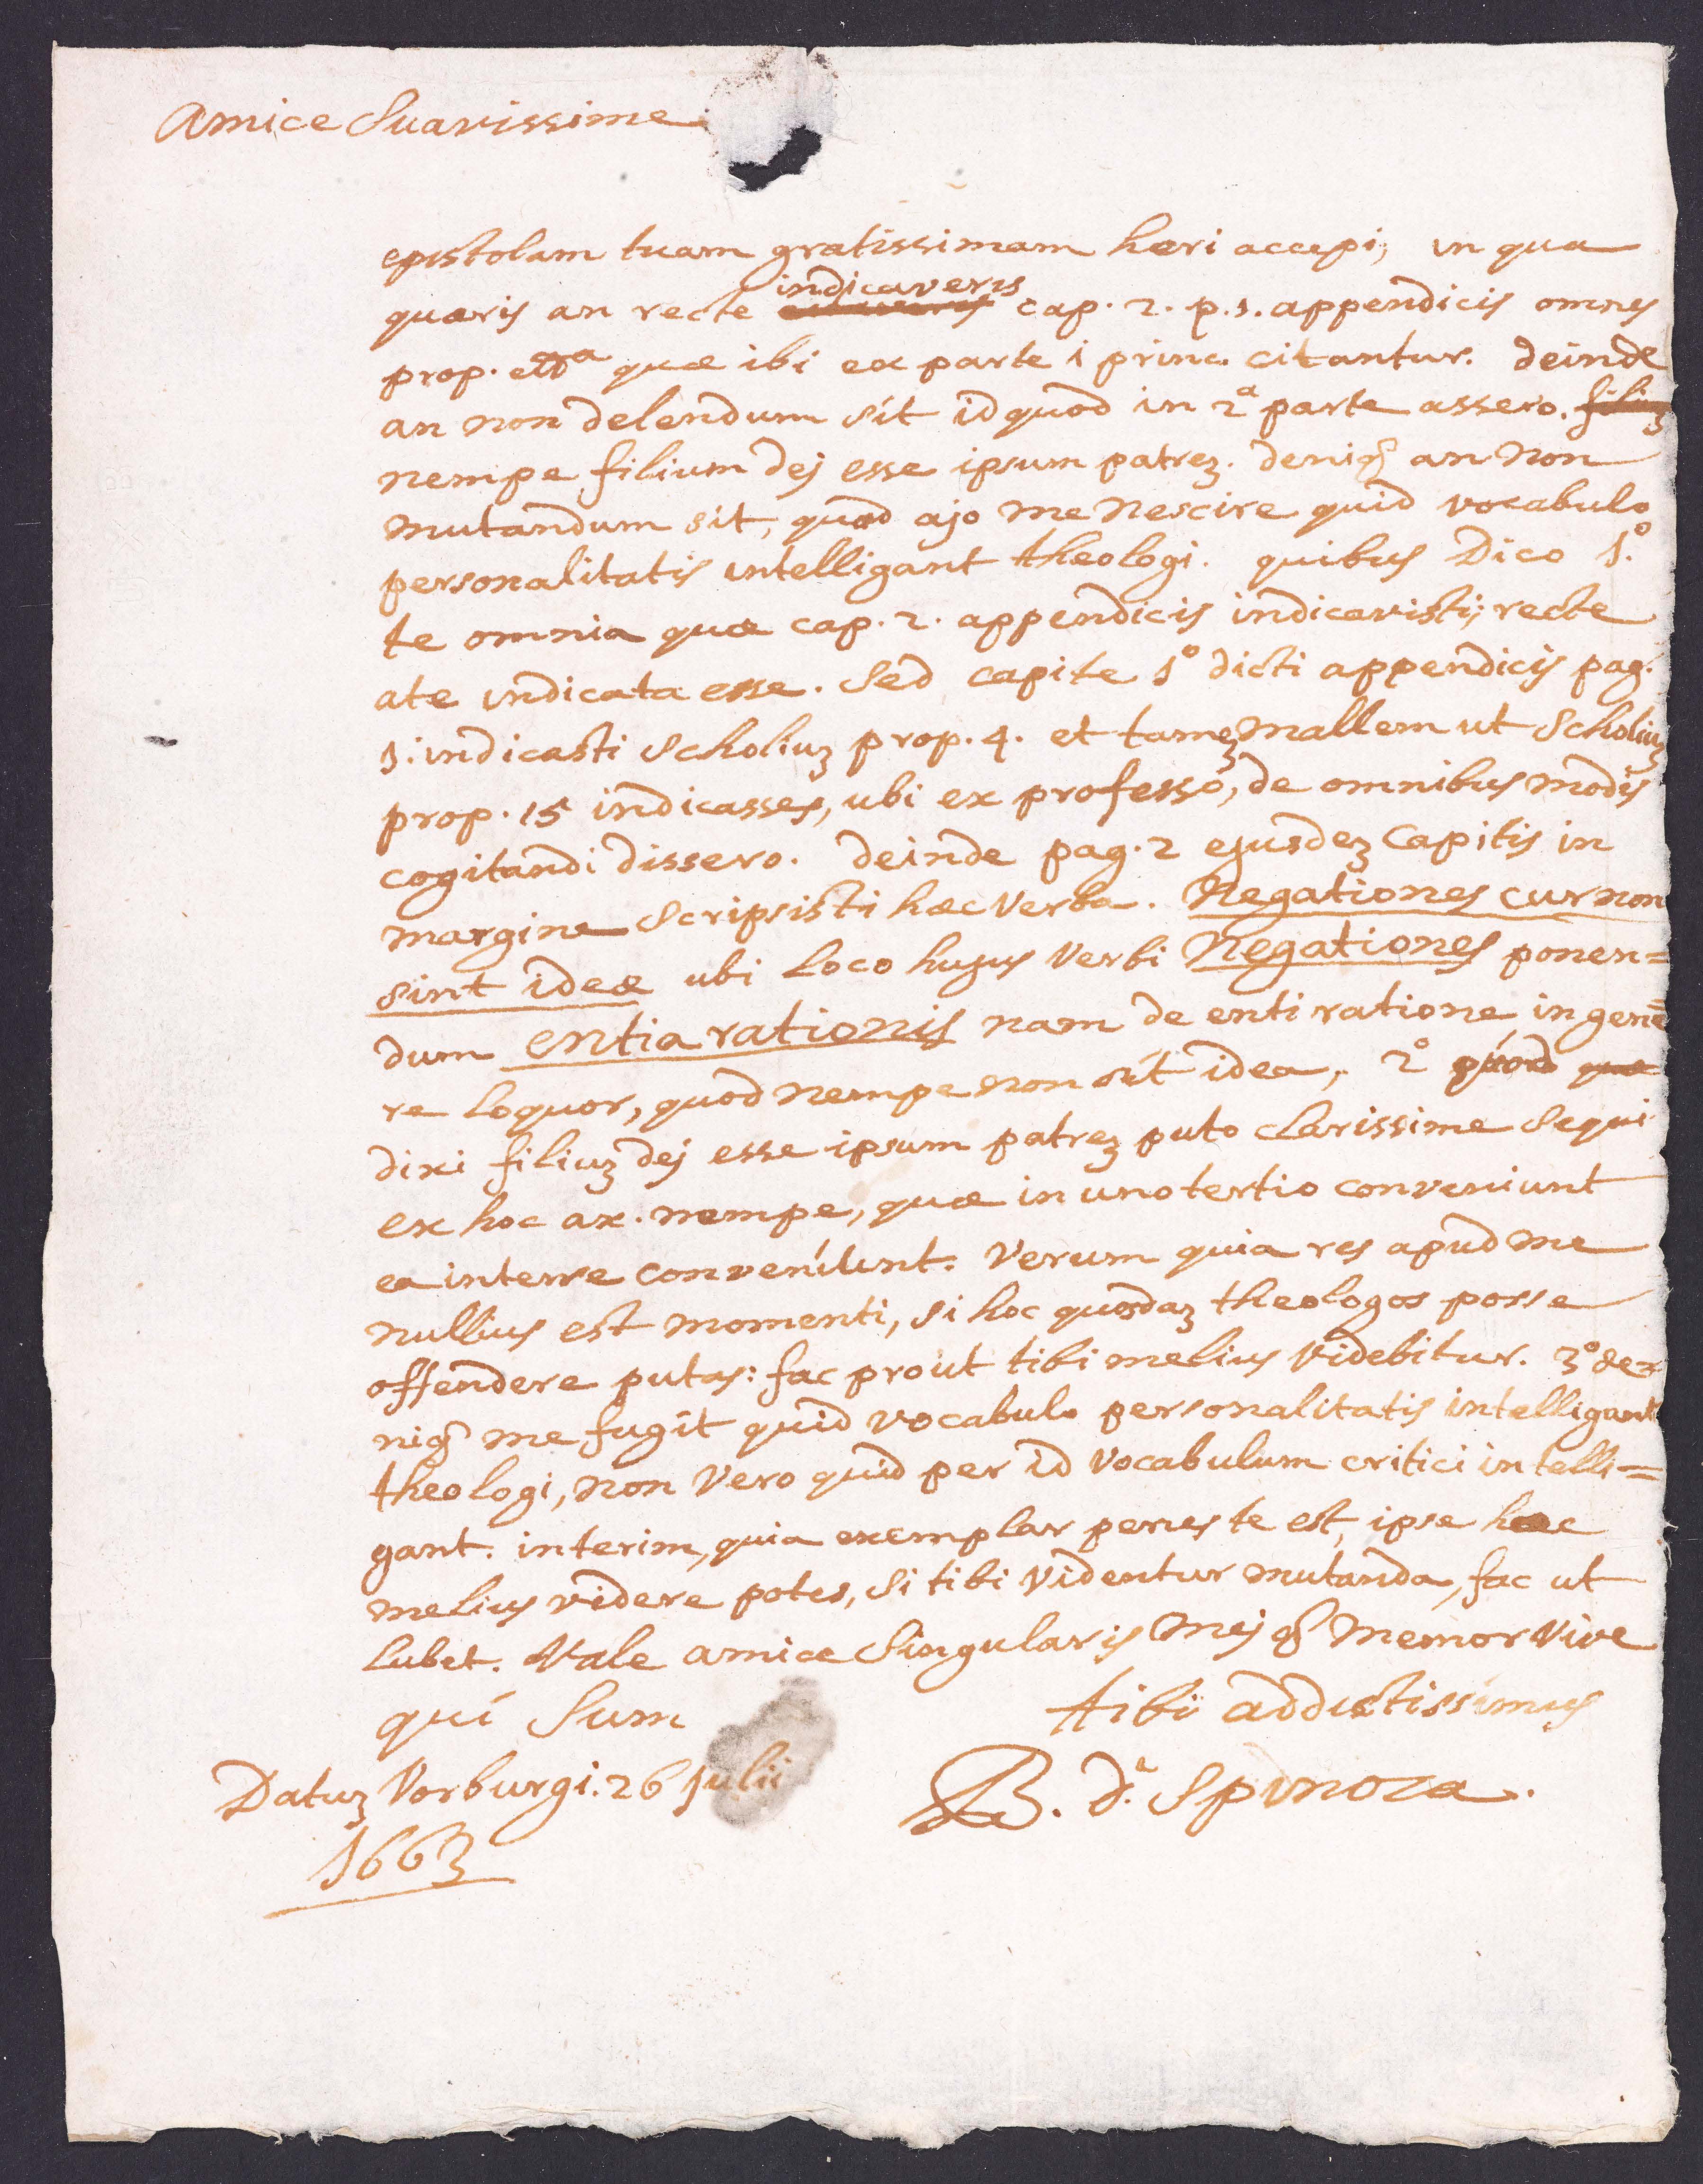 Amice Suavissime
epistolam tuam gratissimam heri accepi, in qua
quæris an recte indicaveris cap. 2. p. 1. appendicis omnes
prop. etca quæ ibi ex parte 1 princ. citantur. deinde
an non delendum sit id quod in 2a parte assero. filiuʒ
nempe filium dej esse ipsum patreʒ. deniqꝫ an non
mutandum sit, quod ajo me nescire quid vocabulo
personalitatis intelligant theologi. quibus Dico 1.o
te omnia quæ cap. 2. appendicis indicavisti, recte
a te indicata esse. Sed capite 1o dicti appendicis pag.
1. indicasti Scholiuʒ prop. 4. et tameʒ mallem ut Scholiuʒ
prop. 15 indicasses, ubi ex professo, de omnibus modis
cogitandi dissero. deinde pag. 2 ejusdeʒ Capitis in
margine Scripsisti hæc Verba. Negationes cur non
sint ideæ ubi loco hujus Verbi Negationes ponen=
dum entia rationis nam de enti ratione in gene=
re loquor, quod nempe non sit idea, 2o quod quæ
dixi filiuʒ dej esse ipsum patreʒ puto clarissime Sequi
ex hoc ax. nempe, quæ in uno tertio conveniunt
ea inter se conveniunt. Verum quia res apud me
nullius est momenti, si hoc quosdaʒ theologos posse
offendere putas: fac prout tibi melius videbitur. 3o de=
niqꝫ me fugit quid vocabulo personalitatis intelligant
theologi, non Vero quid per id Vocabulum critici intelli=
gant. interim, quia exemplar penes te est, ipse hæc
melius videre potes, Si tibi videntur mutanda, fac ut
lubet. Vale amice Singularis mejqꝫ memor Vive
qui Sum
tibi addictissimus
Datuʒ Vorburgi. 26 Julii
B. d. Spinoza.
1663